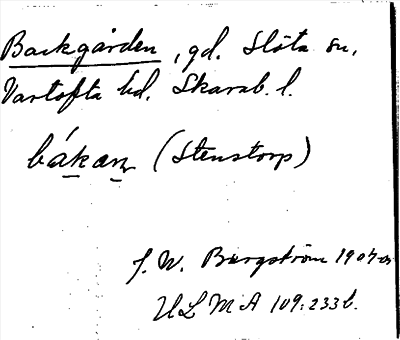 Backgården, gd. Slöta sn,
Vartofta hd. Skarab. l.
bákan (Stenstorp)
J. W. Bergström 1904-05
ULMA 109:233 b.